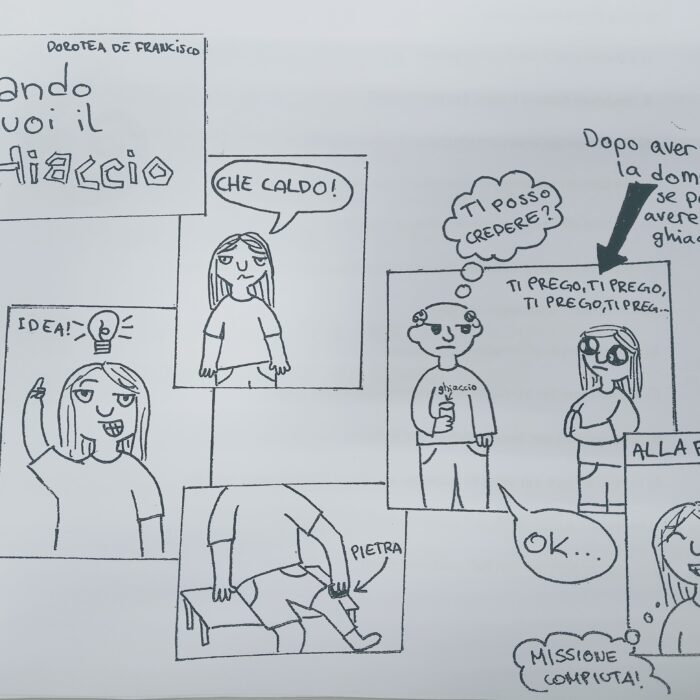 DOROTEA DE FRANCISCO
ando
uoi il
Hiaccio
CHE CALDO!
IDEA!
PIETRA
Dopo aver
la dom
se po
avere
ghiac
TI POSSO
CREDERE?
TI PREGO, TI PREGO,
TI PREGO, TI PREG...
ghiaccio
OK...
ALLA F
MISSIONE
COMPIUTA!